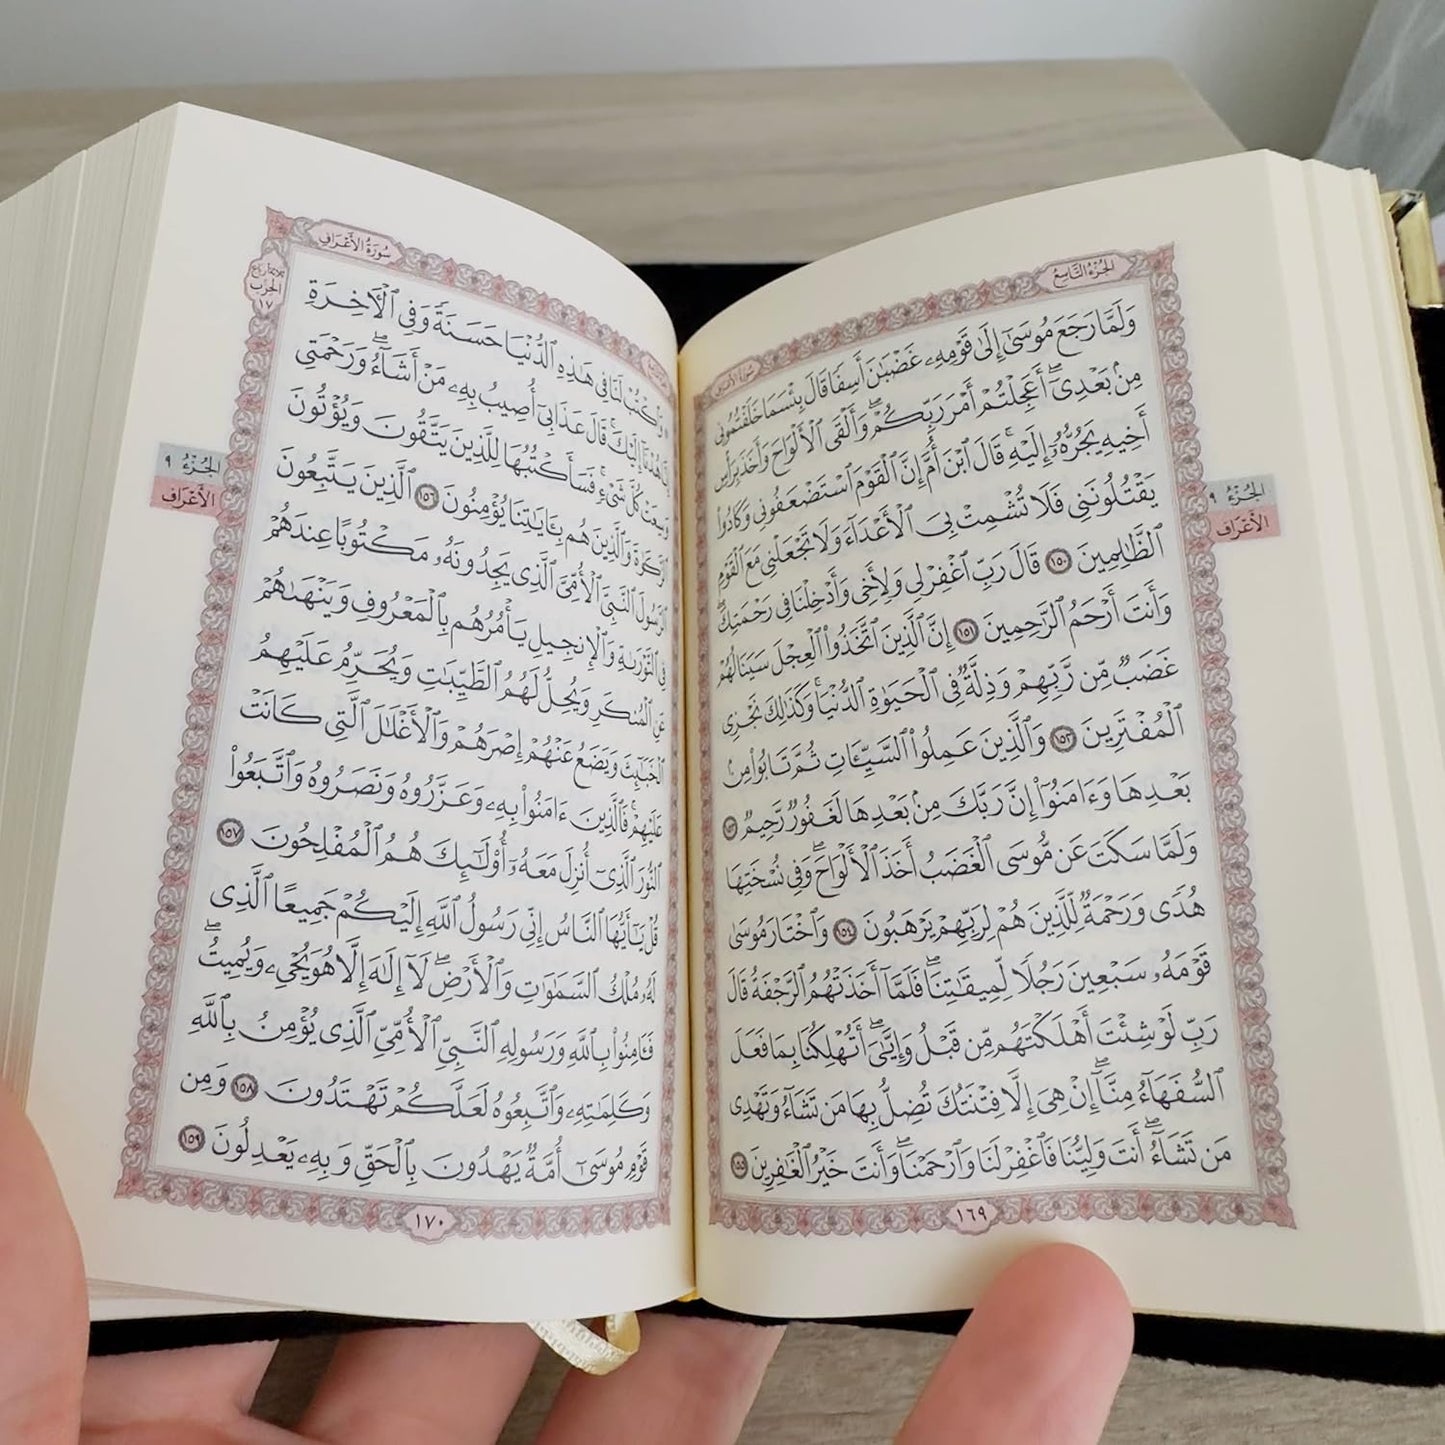 الجُزْءُ التَّاسِعُ
سُورَةُ الأَعْرَافِ
وَلَمَّا رَجَعَ مُوسَىٰٓ إِلَىٰ قَوْمِهِۦ غَضْبَٰنَ أَسِفًا قَالَ بِئْسَمَا خَلَفْتُمُونِى
مِنۢ بَعْدِىٓۖ أَعَجِلْتُمْ أَمْرَ رَبِّكُمْۖ وَأَلْقَى ٱلْأَلْوَاحَ وَأَخَذَ بِرَأْسِ
أَخِيهِ يَجُرُّهُۥٓ إِلَيْهِۚ قَالَ ٱبْنَ أُمَّ إِنَّ ٱلْقَوْمَ ٱسْتَضْعَفُونِى وَكَادُوا۟
يَقْتُلُونَنِى فَلَا تُشْمِتْ بِىَ ٱلْأَعْدَآءَ وَلَا تَجْعَلْنِى مَعَ ٱلْقَوْمِ
ٱلظَّٰلِمِينَ ١٥٠ قَالَ رَبِّ ٱغْفِرْ لِى وَلِأَخِى وَأَدْخِلْنَا فِى رَحْمَتِكَۖ
وَأَنتَ أَرْحَمُ ٱلرَّٰحِمِينَ ١٥١ إِنَّ ٱلَّذِينَ ٱتَّخَذُوا۟ ٱلْعِجْلَ سَيَنَالُهُمْ
غَضَبٌ مِّن رَّبِّهِمْ وَذِلَّةٌ فِى ٱلْحَيَوٰةِ ٱلدُّنْيَاۚ وَكَذَٰلِكَ نَجْزِى
ٱلْمُفْتَرِينَ ١٥٢ وَٱلَّذِينَ عَمِلُوا۟ ٱلسَّيِّـَٔاتِ ثُمَّ تَابُوا۟ مِنۢ
بَعْدِهَا وَءَامَنُوٓا۟ إِنَّ رَبَّكَ مِنۢ بَعْدِهَا لَغَفُورٌ رَّحِيمٌ ١٥٣
وَلَمَّا سَكَتَ عَن مُّوسَى ٱلْغَضَبُ أَخَذَ ٱلْأَلْوَاحَۖ وَفِى نُسْخَتِهَا
هُدًى وَرَحْمَةٌ لِّلَّذِينَ هُمْ لِرَبِّهِمْ يَرْهَبُونَ ١٥٤ وَٱخْتَارَ مُوسَىٰ
قَوْمَهُۥ سَبْعِينَ رَجُلًا لِّمِيقَٰتِنَاۖ فَلَمَّآ أَخَذَتْهُمُ ٱلرَّجْفَةُ قَالَ
رَبِّ لَوْ شِئْتَ أَهْلَكْتَهُم مِّن قَبْلُ وَإِيَّٰىَۖ أَتُهْلِكُنَا بِمَا فَعَلَ
ٱلسُّفَهَآءُ مِنَّآۖ إِنْ هِىَ إِلَّا فِتْنَتُكَ تُضِلُّ بِهَا مَن تَشَآءُ وَتَهْدِى
مَن تَشَآءُۖ أَنتَ وَلِيُّنَا فَٱغْفِرْ لَنَا وَٱرْحَمْنَاۖ وَأَنتَ خَيْرُ ٱلْغَٰفِرِينَ ١٥٥
١٦٩
الجُزْءُ ٩
الأَعْرَاف
سُورَةُ الأَعْرَافِ
ثلاثة أرباع
الحِزْب
١٧
وَٱكْتُبْ لَنَا فِى هَٰذِهِ ٱلدُّنْيَا حَسَنَةً وَفِى ٱلْـَٔاخِرَةِ
إِنَّا هُدْنَآ إِلَيْكَۚ قَالَ عَذَابِىٓ أُصِيبُ بِهِۦ مَنْ أَشَآءُۖ وَرَحْمَتِى
وَسِعَتْ كُلَّ شَىْءٍۚ فَسَأَكْتُبُهَا لِلَّذِينَ يَتَّقُونَ وَيُؤْتُونَ
ٱلزَّكَوٰةَ وَٱلَّذِينَ هُم بِـَٔايَٰتِنَا يُؤْمِنُونَ ١٥٦ ٱلَّذِينَ يَتَّبِعُونَ
ٱلرَّسُولَ ٱلنَّبِىَّ ٱلْأُمِّىَّ ٱلَّذِى يَجِدُونَهُۥ مَكْتُوبًا عِندَهُمْ
فِى ٱلتَّوْرَىٰةِ وَٱلْإِنجِيلِ يَأْمُرُهُم بِٱلْمَعْرُوفِ وَيَنْهَىٰهُمْ
عَنِ ٱلْمُنكَرِ وَيُحِلُّ لَهُمُ ٱلطَّيِّبَٰتِ وَيُحَرِّمُ عَلَيْهِمُ
ٱلْخَبَٰٓئِثَ وَيَضَعُ عَنْهُمْ إِصْرَهُمْ وَٱلْأَغْلَٰلَ ٱلَّتِى كَانَتْ
عَلَيْهِمْۚ فَٱلَّذِينَ ءَامَنُوا۟ بِهِۦ وَعَزَّرُوهُ وَنَصَرُوهُ وَٱتَّبَعُوا۟
ٱلنُّورَ ٱلَّذِىٓ أُنزِلَ مَعَهُۥٓ أُو۟لَٰٓئِكَ هُمُ ٱلْمُفْلِحُونَ ١٥٧
قُلْ يَٰٓأَيُّهَا ٱلنَّاسُ إِنِّى رَسُولُ ٱللَّهِ إِلَيْكُمْ جَمِيعًا ٱلَّذِى
لَهُۥ مُلْكُ ٱلسَّمَٰوَٰتِ وَٱلْأَرْضِۖ لَآ إِلَٰهَ إِلَّا هُوَ يُحْىِۦ وَيُمِيتُۖ
فَـَٔامِنُوا۟ بِٱللَّهِ وَرَسُولِهِ ٱلنَّبِىِّ ٱلْأُمِّىِّ ٱلَّذِى يُؤْمِنُ بِٱللَّهِ
وَكَلِمَٰتِهِۦ وَٱتَّبِعُوهُ لَعَلَّكُمْ تَهْتَدُونَ ١٥٨ وَمِن
قَوْمِ مُوسَىٰٓ أُمَّةٌ يَهْدُونَ بِٱلْحَقِّ وَبِهِۦ يَعْدِلُونَ ١٥٩
١٧٠
الجُزْءُ ٩
الأَعْرَاف